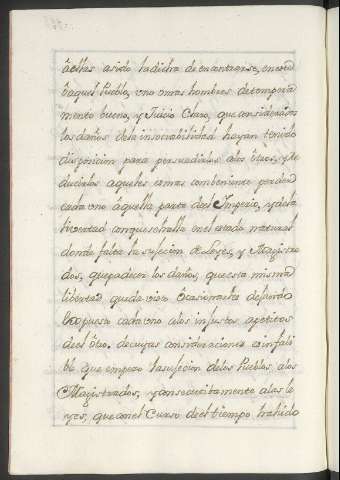 à ellas asido la dicha de encontrarse, en cada
ò aquel Pueblo, uno ô mas hombres de tempera
mento bueno, y Juicio Claro, que considerados
los daños de la insociabilidad hayan tenido
disposicion para persuadirlos alos ôtros, y re
ducirlos aqueles eamas combeniente perder
cada uno aquella parte del Imperio, y de la
livertad conque se halla en el estado natural
donde falta la sujecion â Leyes, y Magistra
dos, que padecer los daños, que esta misma
libertad queda viva ôcasionarles dejando
Expuesto cada uno alos injustos apetitos
de el ôtro. de cuyas consideraciones es infali
ble que empezo la sujecion de los Pueblos, alos
Magistrados, y consecuitamente alas le
yes, que con el Curso de el tiempo ha hido